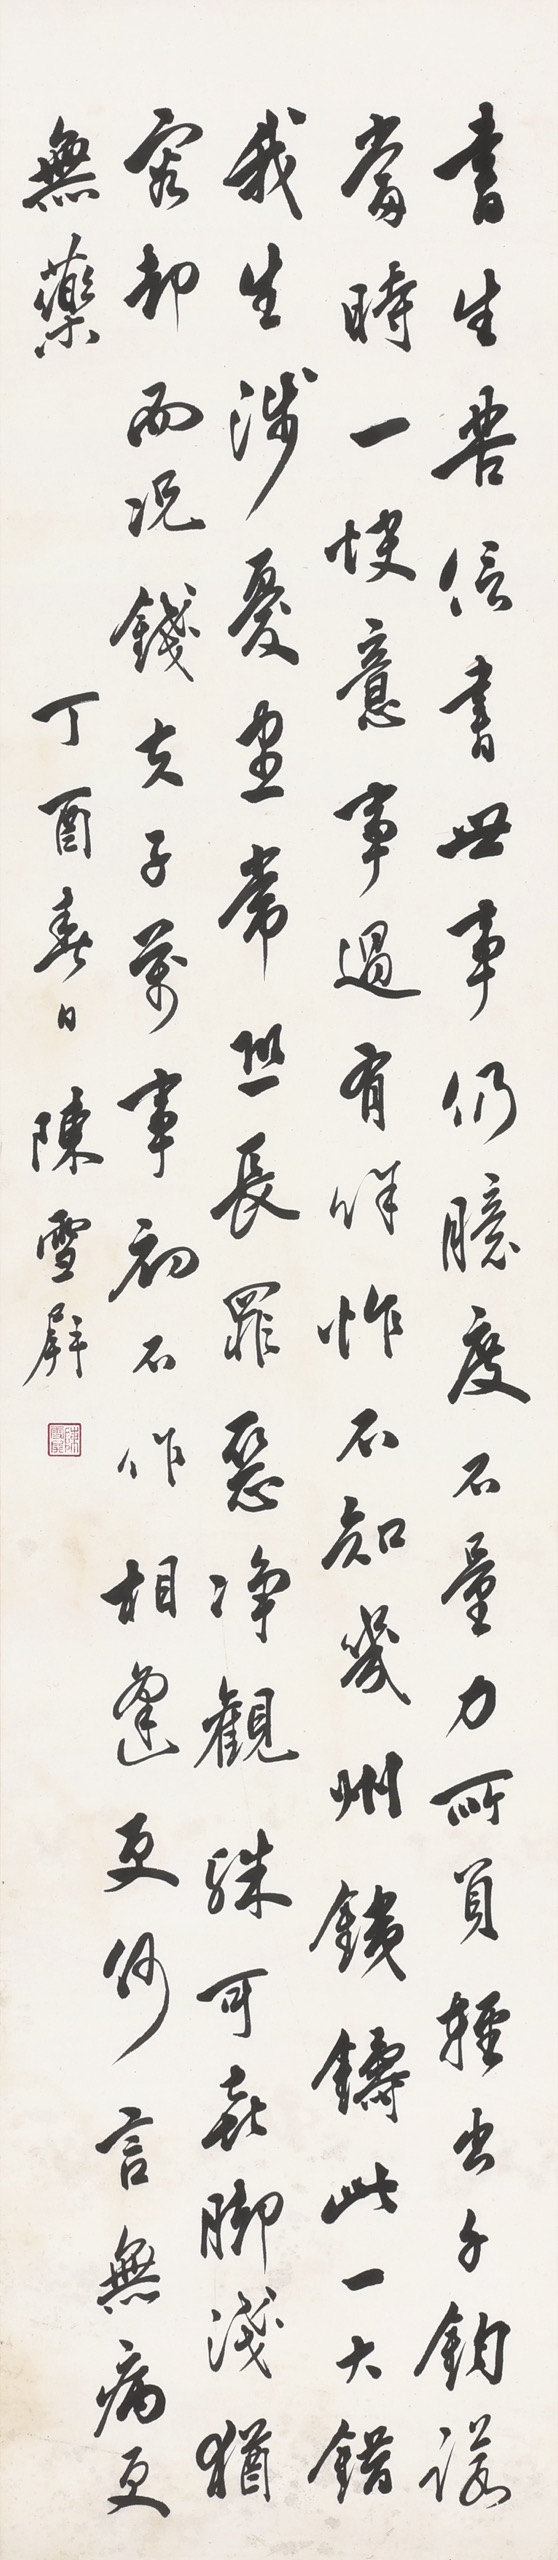 書生苦信書世事仍臆度不量力所負輕出千鈞諾
當時一快意事過有餘怍不知幾州銕鑄此一大錯
我生涉憂患常恐長罪惡净觀殊可喜脚淺猶
容却而況錢夫子萬事初不作相逢更何言無病更
無藥 丁酉春日 陳雪屏
陳雪屏